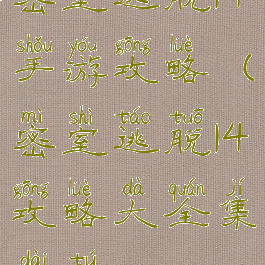 shǒu yóu gōng lüè
手游攻略（
mì shì táo tuō
密室逃脱14
gōng lüè dà quán jí
攻略大全集
dài tú